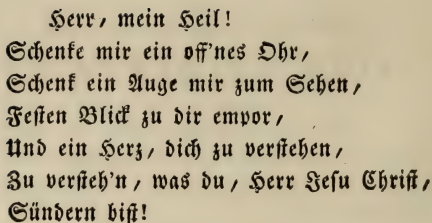 Herr, mein Heil!
Schenke mir ein off'nes Ohr,
Schenk ein Auge mir zum Sehen,
Festen Blick zu dir empor,
Und ein Herz, dich zu verstehen,
Zu versteh'n, was du, Herr Jesu Christ,
Sündern bist!